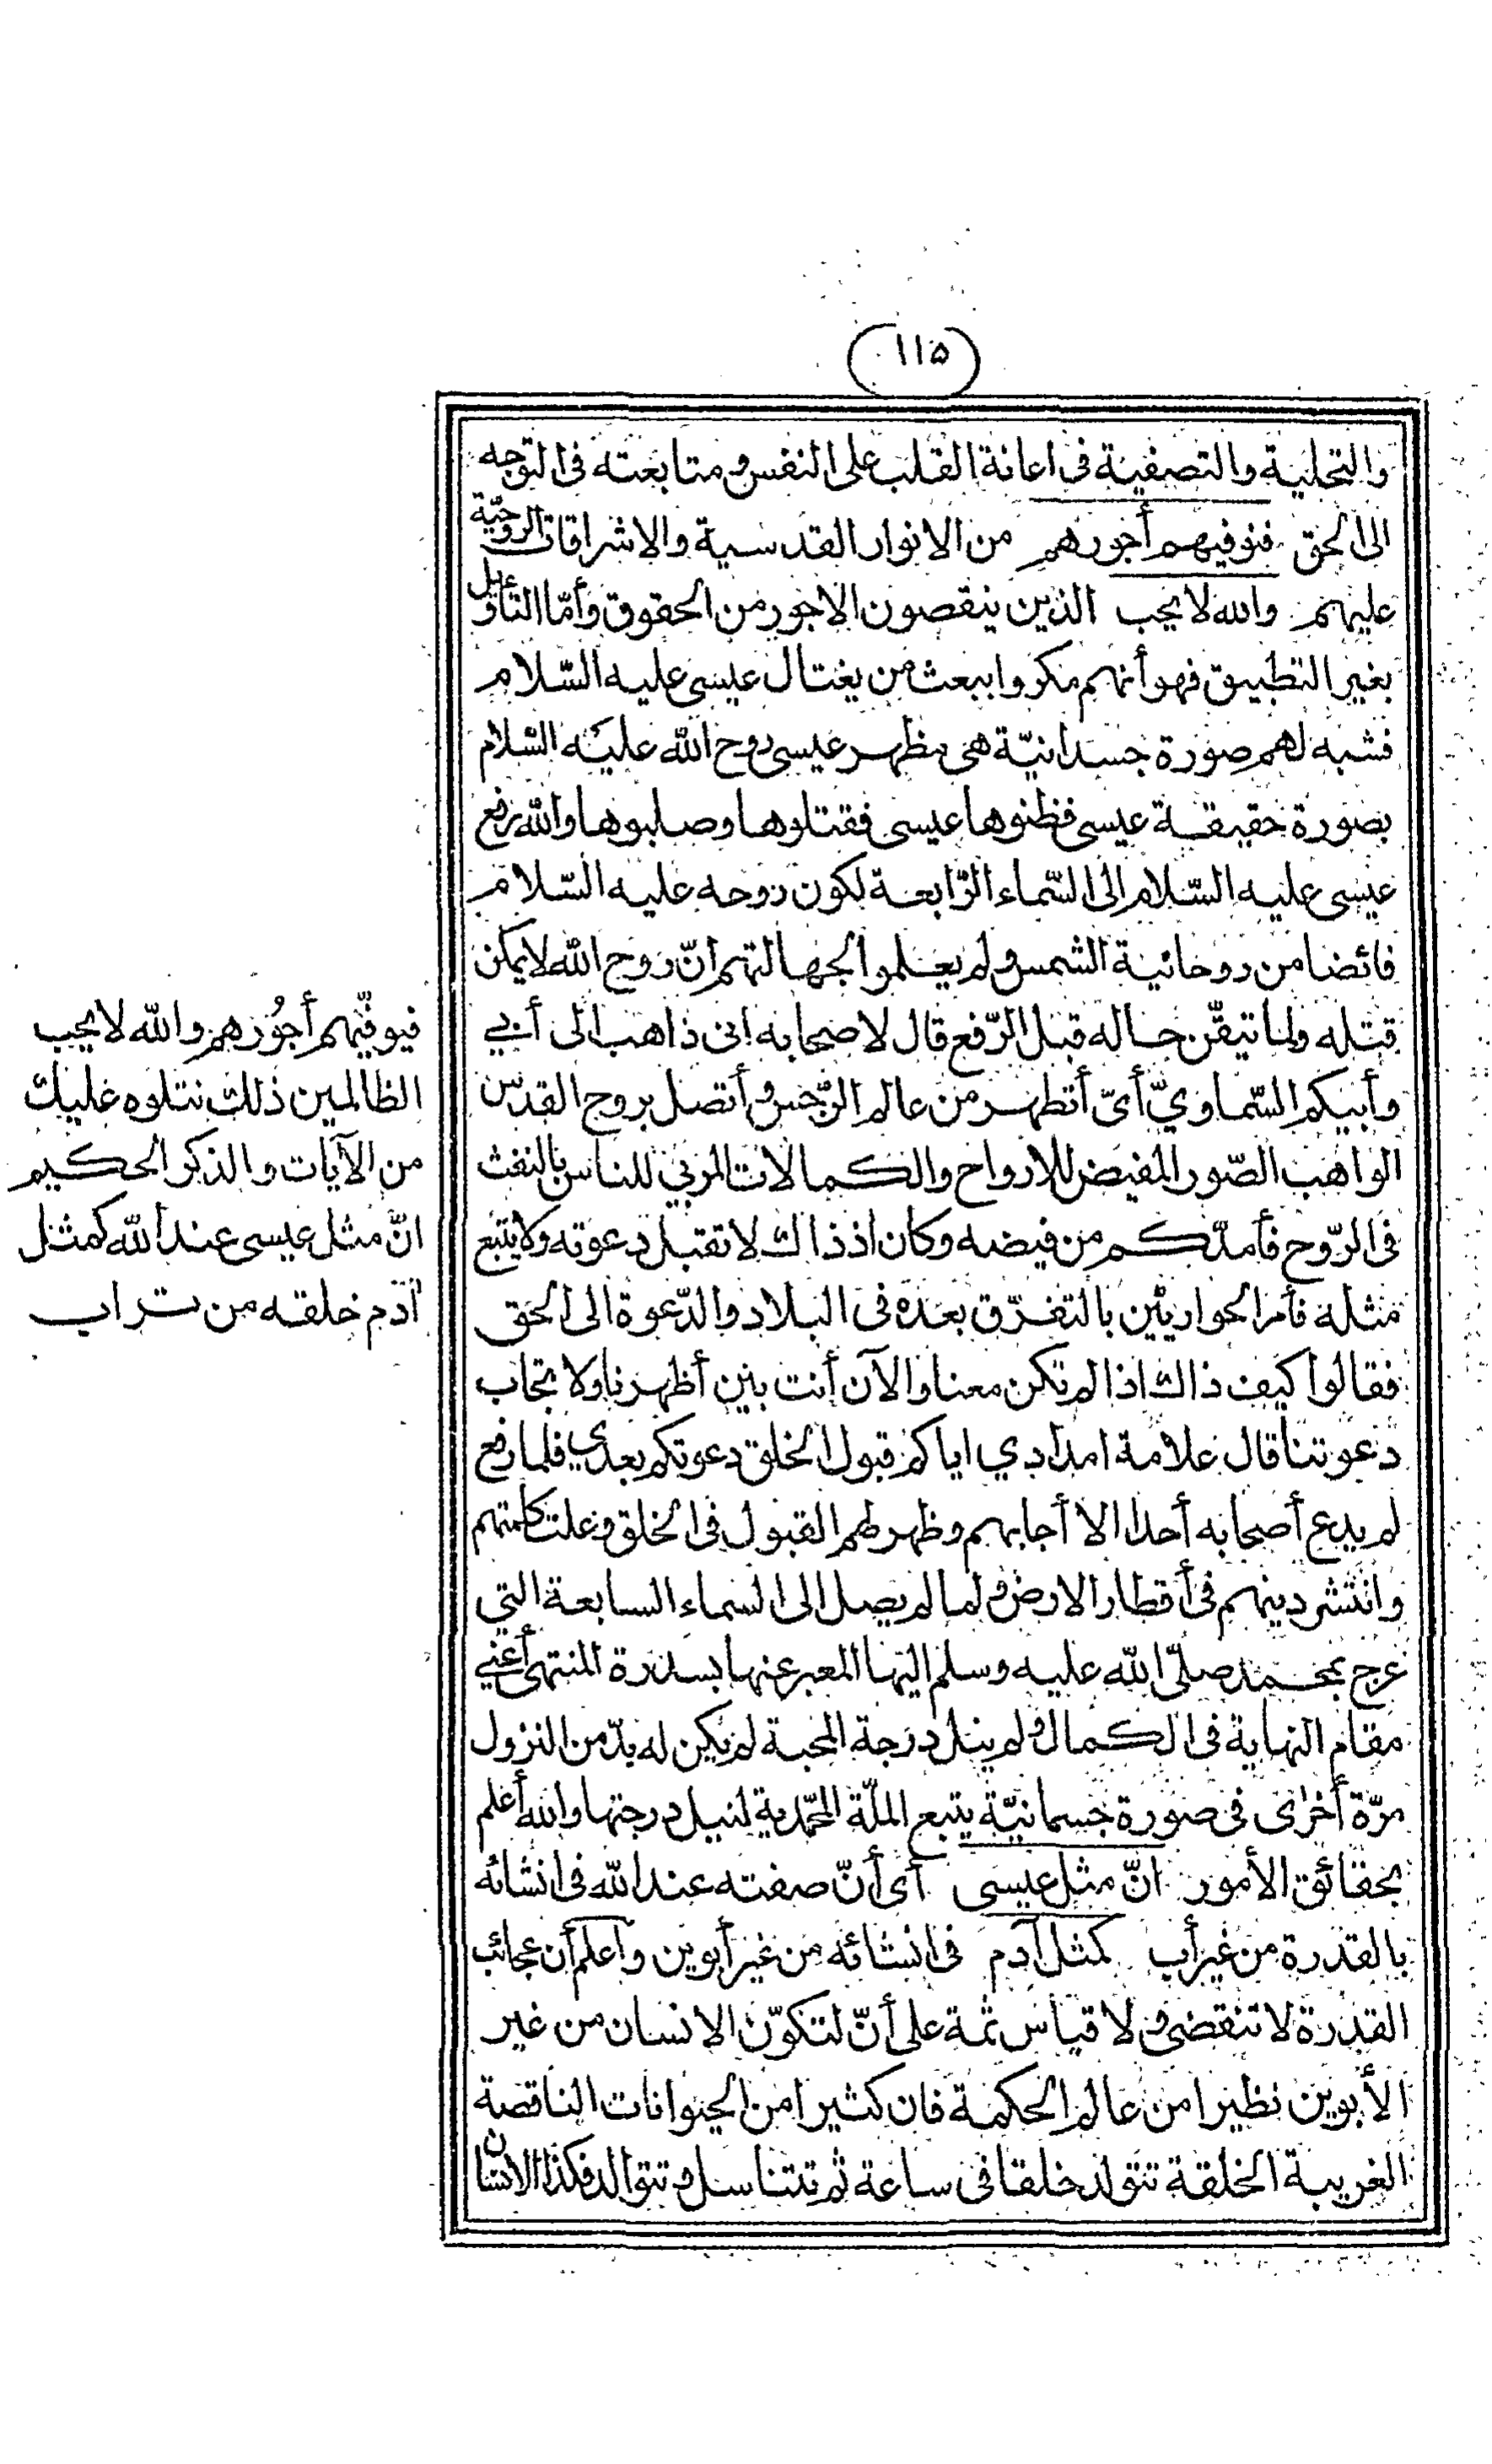 (١١٥)
والتحلية والتصفية فى اعانة القلب على النفس ومتابعته فى التوجه
الى الحق فنوفيهم أجورهم من الانوار القدسية والاشراقات الروحيّة
عليهم والله لا يحب الذين ينقصون الاجور من الحقوق وأمّا التأويل
بغير التطبيق فهو أنهم مكروا ببعث من يغتال عيسى عليه السّلام
فشبه لهم صورة جسدانيّة هى مظهر عيسى روح الله عليه السّلام
بصورة حقيقة عيسى فظنوها عيسى فقتلوها وصلبوها والله رفع
عيسى عليه السّلام الى السّماء الرّابعة لكون روحه عليه السّلام
فائضا من روحانية الشمس ولم يعلموا لجهالتهم انّ روح الله لا يمكن
قتله ولما تيقّن حاله قبل الرّفع قال لاصحابه انى ذاهب الى أبي
وأبيكم السّماويّ أى أتطهر من عالم الرّجس وأتصل بروح القدس
الواهب الصّور المفيض للارواح والكمالات المربي للناس بالنفث
فى الرّوح فأمدّكم من فيضه وكان اذ ذاك لا تقبل دعوته ولا يتبع
مثله فأمر الحواريّين بالتفرّق بعده فى البلاد والدّعوة الى الحق
فقالوا كيف ذاك اذا لم تكن معنا والآن أنت بين أظهرنا ولا تجاب
دعوتنا قال علامة امدادي اياكم قبول الخلق دعوتكم بعدي فلما رفع
لم يدع أصحابه أحدا الا أجابهم وظهر لهم القبول فى الخلق وعلت كلمتهم
وانتشر دينهم فى أقطار الارض ولما لم يصل الى السماء السابعة التي
عرج بمحمد صلّى الله عليه وسلم اليها المعبر عنها بسدرة المنتهى أعني
مقام النهاية فى الكمال ولم ينل درجة المحبة لم يكن له بدّ من النزول
مرّة أخرى فى صورة جسمانيّة يتبع الملّة المحمّدية لنيل درجتها والله أعلم
بحقائق الأمور انّ مثل عيسى أى أنّ صفته عند الله فى انشائه
بالقدرة من غير أب كمثل آدم فى انشائه من غير أبوين واعلم أن عجائب
القدرة لا تنقضى ولا قياس ثمة على أنّ لتكوّن الانسان من غير
الأبوين نظيرا من عالم الحكمة فان كثيرا من الحيوانات الناقصة
الغريبة الخلقة تتولد خلقا فى ساعة ثم تتناسل وتتوالد فكذا الانسان
فيوفّيهم أجُورهم والله لا يحب
الظالمين ذلك نتلوه عليك
من الآيات والذكر الحكيم
انّ مثل عيسى عند الله كمثل
آدم خلقه من تراب